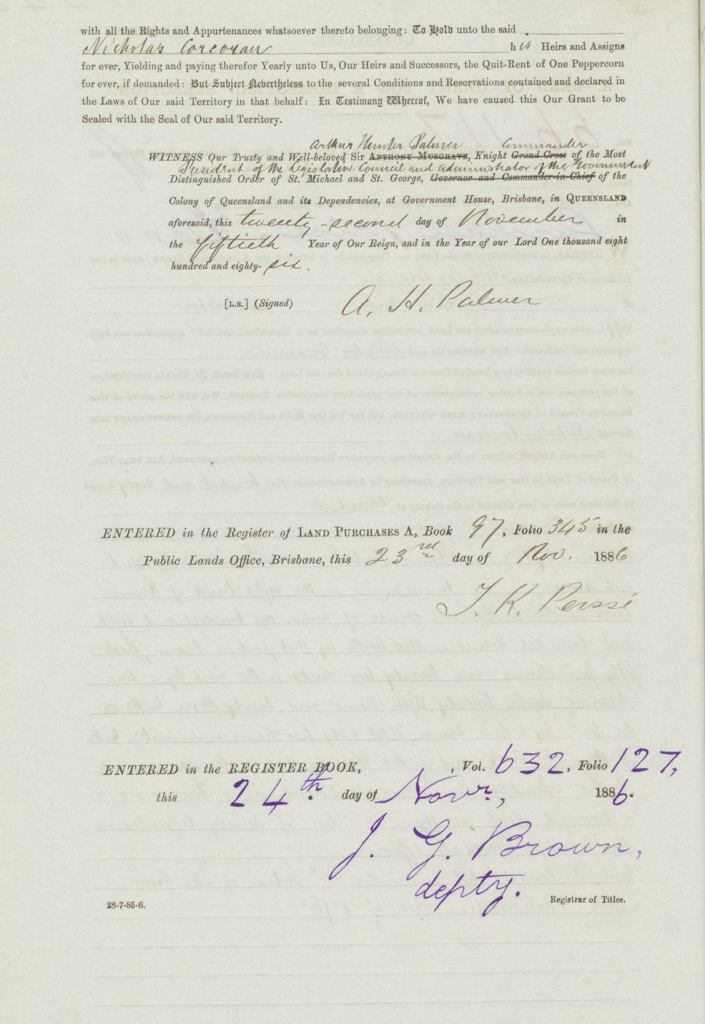 with all the Rights and Appurtenances whatsoever thereto belonging: To Hold unto the said
Nicholas Corcoran his Heirs and Assigns
for ever, Yielding and paying therefor Yearly unto Us, Our Heirs and Successors, the Quit-Rent of One Peppercorn
for ever, if demanded: But Subject Nevertheless to the several Conditions and Reservations contained and declared in
the Laws of Our said Territory in that behalf: In Testimony Whereof, We have caused this Our Grant to be
Sealed with the Seal of Our said Territory.
Arthur Hunter Palmer Commander
WITNESS Our Trusty and Well-beloved Sir ANTHONY MUSGRAVE, Knight Grand Cross of the Most
President of the Legislative Council and Administrator of the Government
Distinguished Order of St. Michael and St. George, Governor and Commander-in-Chief of the
Colony of Queensland and its Dependencies, at Government House, Brisbane, in QUEENSLAND
aforesaid, this twenty-second day of November in
the fiftieth Year of Our Reign, and in the Year of our Lord One thousand eight
hundred and eighty-six.
[L.S.] (Signed) A. H. Palmer
ENTERED in the Register of LAND PURCHASES A, Book 97, Folio 345 in the
Public Lands Office, Brisbane, this 23rd day of Nov. 1886
T. K. Perssé
ENTERED in the REGISTER BOOK, , Vol. 632, Folio 127,
this 24th day of Novr, 1886.
J. G. Brown,
depty.
28-7-85-6. Registrar of Titles.